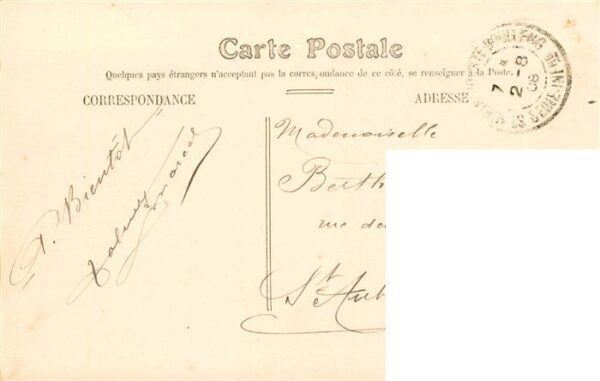 Carte Postale
Quelques pays étrangers n'acceptant pas la corres,ondance de ce côté, se renseigner à la Poste.
CORRESPONDANCE
ADRESSE
A Bientôt
Marcel
Mademoiselle
Berth
rue de
St Aub
7
2-8
08